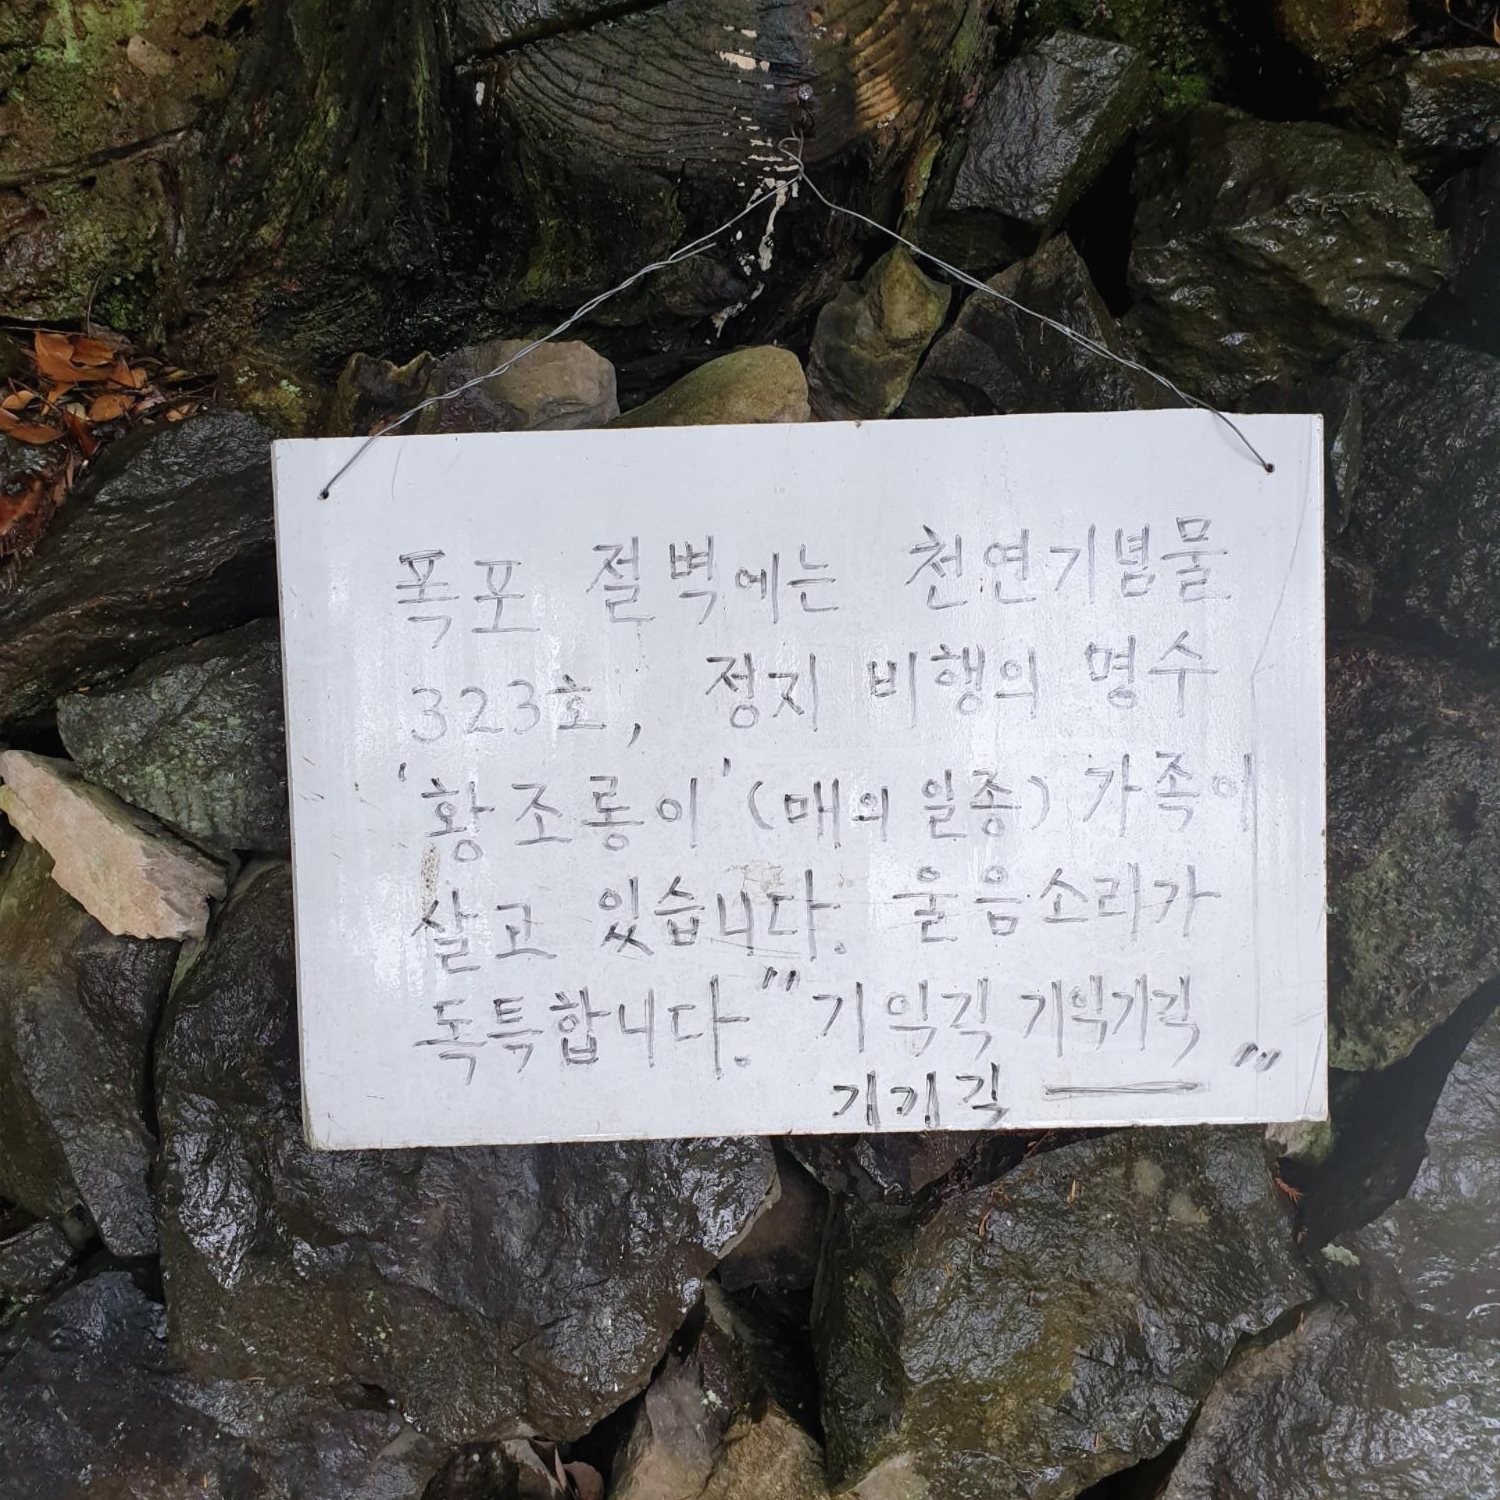 폭포 절벽에는 천연기념물
323호, 정지 비행의 명수
'황조롱이'(매의 일종) 가족이
살고 있습니다. 울음소리가
독특합니다. "기익긱 기익기긱
기기긱 ―"